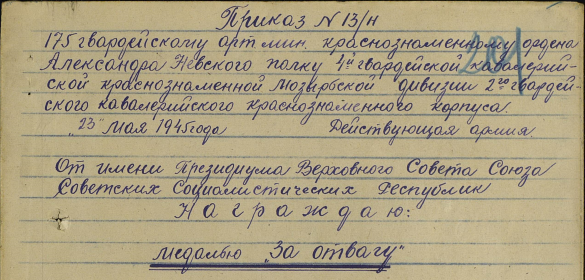 Приказ №13/н
175 гвардейскому арт. мин. краснознаменному ордена
Александра Невского полку 4й гвардейской кавалерий-
ской краснознаменной Мозырьской дивизии 2го гвардей-
ского кавалерийского краснознаменного корпуса.
"23" мая 1945 года Действующая армия.
От имени Президиума Верховного Совета Союза
Советских Социалистических Республик
Награждаю:
Медалью "За отвагу"